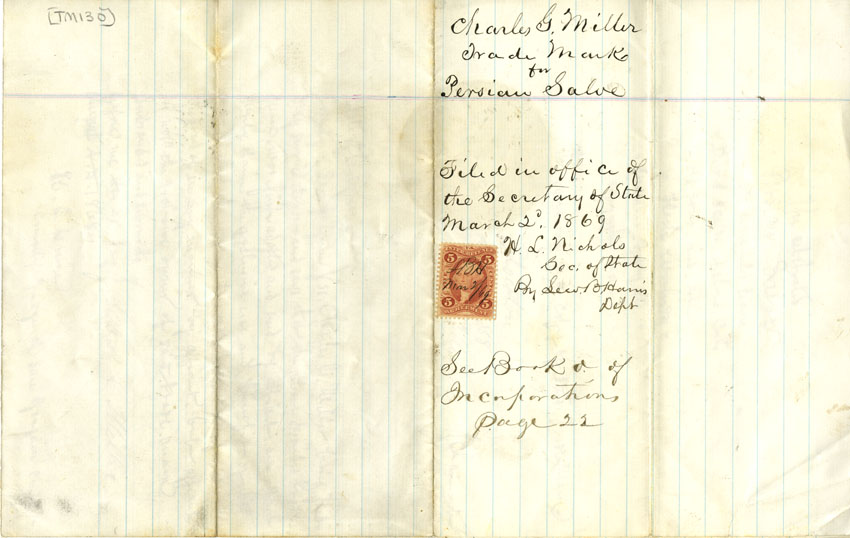 [TM130]
Charles G. Miller
Trade Mark
for
Persian Salve
Filed in office of
the Secretary of State
March 2d. 1869
H. L. Nichols
Sec. of State
By Lew B Harris
Dept
5 5
LBH
Mar 2/69
5 5
See Book of
Incorporations
Page 22